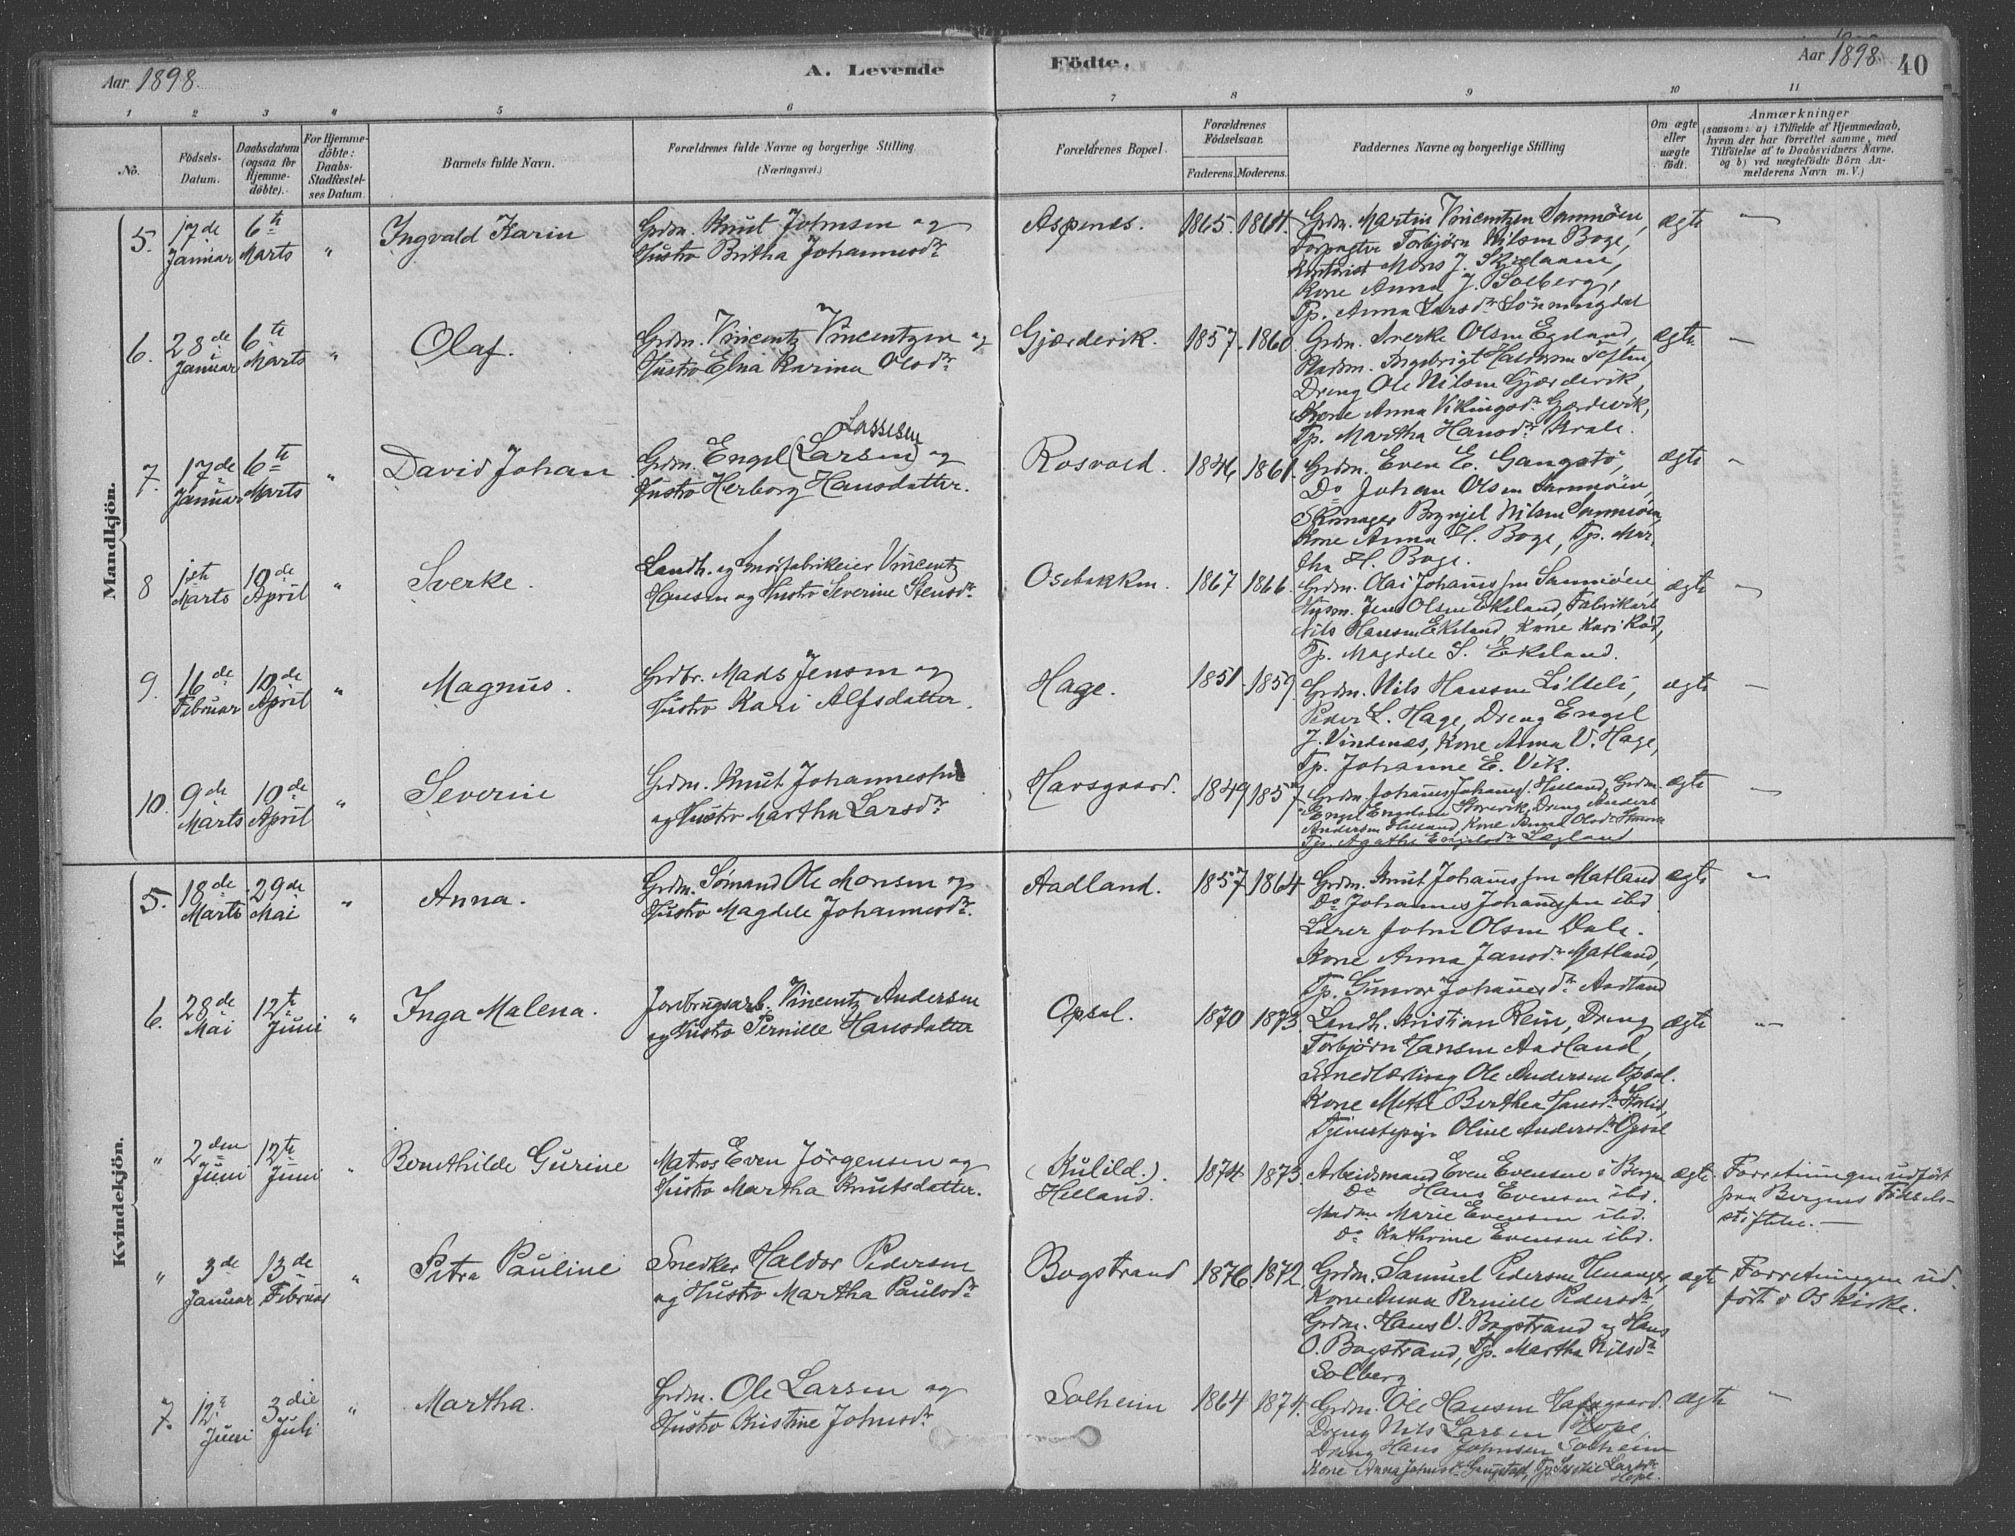 Aar 1898. A. Levende Födte. Aar 1898 40
1 2 3 4 5 6 7 8 9 10 11
No. Födsels-Datum. Daabsdatum (ogsaa for Hjemme-döbte). For Hjemme-döbte: Daabs-Stadfæstel-ses Datum. Barnets fulde Navn. Forældrenes fulde Navne og borgerlige Stilling (Næringsvei.) Forældrenes Bopæl. Forældrenes Födselsaar. Faderens. Moderens. Faddernes Navne og borgerlige Stilling Om ægte eller uægte födt. Anmærkninger
(saasom: a) i Tilfælde af Hjemmedaab, hvem der har forrettet samme, med Tilföielse af to Daabsvidners Navne, og b) ved uægtefödte Börn An-melderens Navn m. V.)
Mandkjön.
5. 17de Januar 6te Marts " Ingvald Karin
Grdm. Knut Johnsen og
Hustro Britha Johannesdr
Aspenes. 1865. 1864.
Grdm. Martin Vincentzen Samnöen,
Forpagter Torbjörn Nilsen Boge,
Mons J.
Kone Anna J. Solberg,
Tp. Anna Larsdr
ægte —
6. 28de Januar 6te Marts " Olaf.
Grdm. Vincentz Vincentzen og
Hustro Elna Karina Olsdr
Gjærdevik. 1857. 1860
Grdm. Sverke Olsen Egeland,
Brynbrigt Haldorsen Toften,
Dreng Ole Nilsen Gjærdevik,
Kone Anna Vikingsdr Gjærdevik,
Tp. Martha Hansdr
ægte —
7. 17de Januar 6te Marts " David Johan
Lassesen
Grdm. Engel (Larsen) og
Hustro Herborg Hansdatter.
Rosvold. 1846 1861.
Grdm. Even E. Gangstö,
Do Johan Olsen Samnöen,
Skomager Brynjel Nilsen Samnöen,
Kone Anna H. Boge, Tp. Mar-
tha H. Boge.
ægte —
8 1ste Marts 10de April " Sverke.
Landh. og Smörfabrikeier Vincentz
Hansen og Hustro Severine Stensdr.
Osebakken. 1867 1866.
Grdm. Olai Johannessen Samnöen,
Husm. Jens Olsen Ekeland, Fabrikarb
Nils Hansen Ekeland Kone Kari Röd,
Tp. Magdele S. Ekeland.
ægte —
9. 16de Februar 10de April " Magnus.
Grdbr. Mads Jensen og
Hustro Kari Alfsdatter.
Hage. 1851 1859.
Grdm. Nils Hansen Lilleli,
Peder L. Hage, Dreng Engel
J. Vindenes, Kone Anna V. Hage,
Tp. Johanne E. Vik.
ægte —
10. 9de Marts 10de April " Severin
Grdm. Knut Johannessen
og Hustro Martha Larsdr
Havsgaard. 1849 1857
Grdm Johannes Johans. Helland, Grdm.
Engel Engelsen Storevik, Dreng Anders
Andersen Helland, Kone Anna Olsdr
Tp. Agathe Engelsdr Lægland
ægte —
Kvindekjön.
5. 18de Marts 29de Mai " Anna.
Grdm. Sömand Ole Monsen og
Hustro Magdele Johannesdr.
Aadland. 1857 1864
Grdm. Knut Johannessen Matland
Do Johannes Johannessen ibd
Lærer John Olsen Dale.
Kone Anna Jansdr Matland,
Tp. Gunvor Johannesdr Aadland
ægte —
6. 28de Mai 12te Juni " Inga Malena.
Jordbrugsarb. Vincentz Andersen
og Hustro Pernille Hansdatter
Opsal. 1870 1873
Landh. Kristian Rein, Dreng
Torbjörn Hansen Aadland,
Smedlærling Ole Andersen Opsal.
Kone Mette Berthea Jansdr
Tjenestepige Oline Andersdr Opsal
ægte —
" 2den Juni 12te Juni " Bernthilde Gurine
Matros Even Jörgensen og
Hustro Martha Knutsdatter.
(Kulild.)
Helland.
1874 1873
Arbeidsmand Even Evensen i Bergen
Do Hans Evensen ibd.
Madm Marie Evensen ibd.
Do Kathrine Evensen ibd.
ægte.
Forretningen udfört
paa Bergens Födsels-
stiftelse. —
" 3de Januar 13de Februar " Petra Pauline
Snedker Haldor Pedersen
og Hustro Martha Paulsdr
Bogstrand 1876. 1872.
Grdm. Samuel Pedersen
Kone Anna Pernille Pedersdr,
Grdm. Hans V. Bogstrand og Hans
O. Bogstrand, Tp. Martha Nilsdr
Solberg
ægte
Forretningen ud-
fört i Os Kirke.
7. 12te Juni 3die Juli " Martha.
Grdm. Ole Larsen og
Hustro Kristine Johnsdr
Solheim 1864 1874.
Grdm. Ole Hansen Hafsgaard.
Dreng Nils Larsen Hope,
Dreng Hans Johnsen Solheim
Kone Anna Johnsdr Tp. Larsdr
Hope.
ægte —